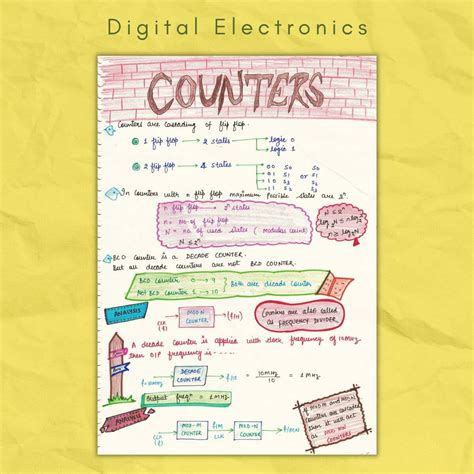 Digital Electronics
COUNTERS
Counters are cascading of flip flop.
1 flip flop → 2 states → logic 0
→ logic 1
2 flip flop → 4 states → 00 S0 S0
01 S1 or S1
10 S2 S2
11 S3 S3
In counters with n flip flop maximum possible states are 2ⁿ.
n flip flop → 2ⁿ states
n = no of flip flop
N = no of used states (modulus count)
N ≤ 2ⁿ
N ≤ 2ⁿ
n ≥ log₂N
BCD COUNTER is a DECADE COUNTER.
But all decade counters are not BCD COUNTER.
BCD counter 0 → 9
NOT BCD COUNTER 5 → 10
Both are decade counter
ANALYSIS
CLK (f) → MOD-N COUNTER → f/N
Counters are also called as FREQUENCY DIVIDER
A decade counter is applied with clock frequency of 10MHz
then O/P frequency is-----
f=10MHz → DECADE COUNTER → f/N = 10MHz/10 = 1MHz
Output freqⁿ = 1MHz
ANALYSIS
CLK (f) → MOD-M COUNTER → f/M CLK → MOD-N COUNTER → f/MN
If MOD-M and MOD-N
counters are cascaded
then it will act
as MOD MN
COUNTERS